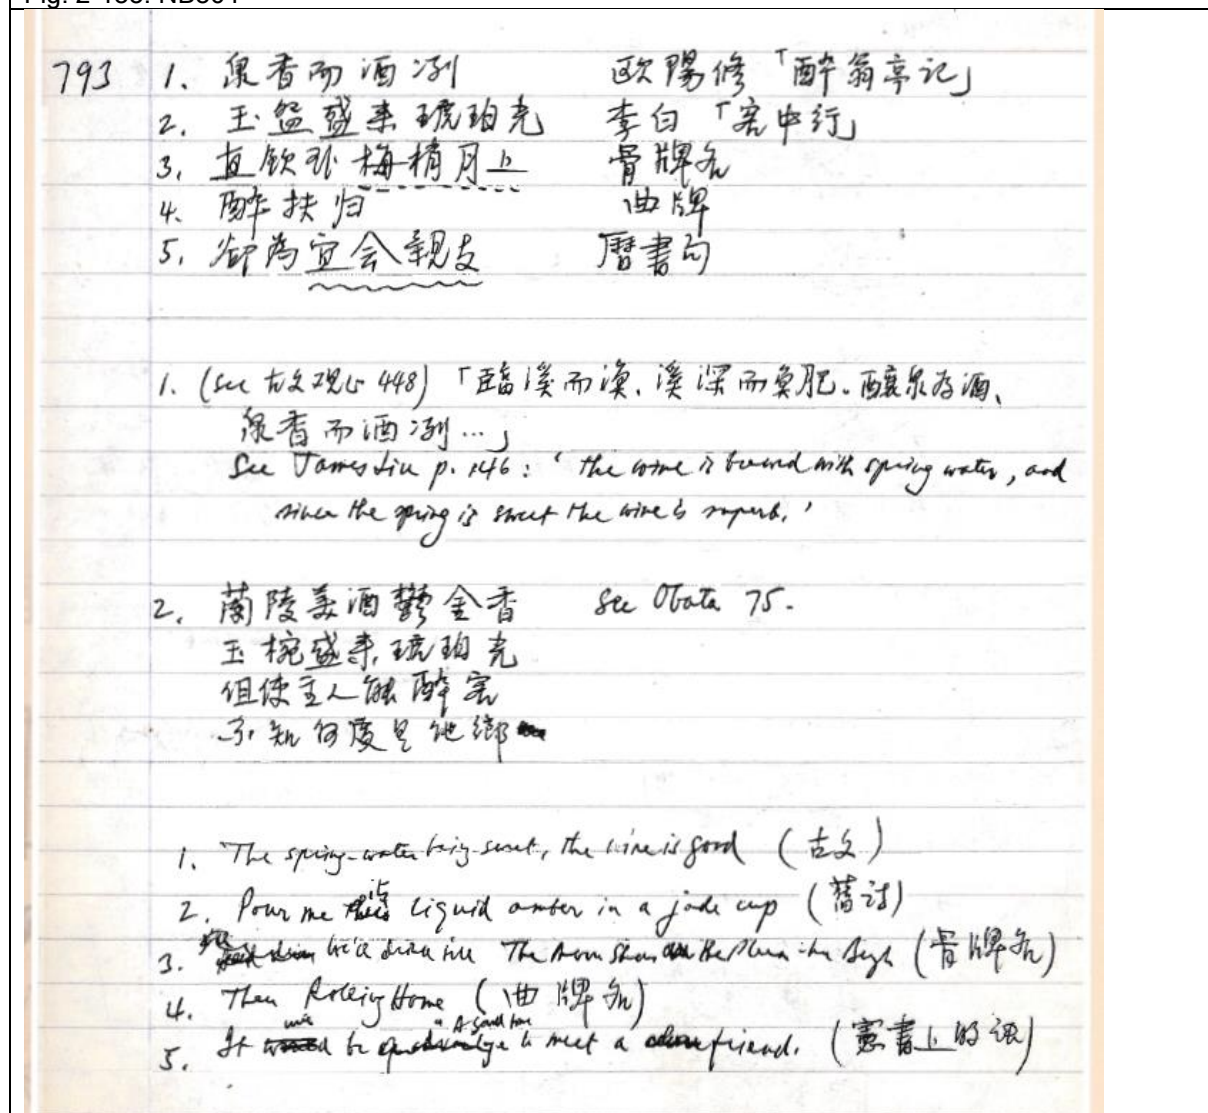 793 1. 泉香而酒冽 歐陽修「醉翁亭记」
2. 玉盌盛来琥珀光 李白「客中行」
3. 直飲到梅梢月上 骨牌名
4. 醉扶归 曲牌
5. 卻為宜会親友 曆書句
1. (see 古文观止 448) 「臨溪而漁、溪深而魚肥。釀泉為酒、
泉香而酒冽...」
See James Liu p. 146: 'the wine is brewed with spring water, and
since the spring is sweet the wine is superb.'
2. 蘭陵美酒鬱金香 See Obata 75.
玉椀盛来琥珀光
但使主人能醉客
不知何處是他鄉
1. The spring-water being sweet, the wine is good (古文)
2. Pour me it liquid amber in a jade cup (舊詩)
3. We'll drink till The Moon Shines the Plum-tree (骨牌名)
4. Then Rolling Home (曲牌名)
5. It be A Good time to meet a friend. (憲書上的话)